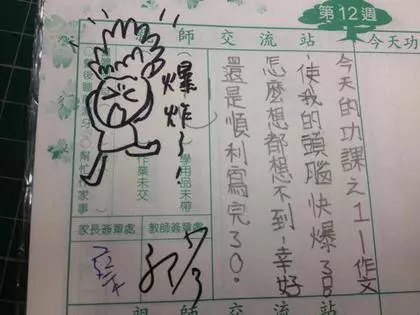 第12週
今天功
師交流站
今天的功課之1-作文
,使我的頭腦快爆3
怎麼想都想不到!幸好
還是順利寫完30.
爆炸~~!
學用品未帶
作業未交
幫忙作家事
家長簽章處
教師簽章處
5/3
師交流站